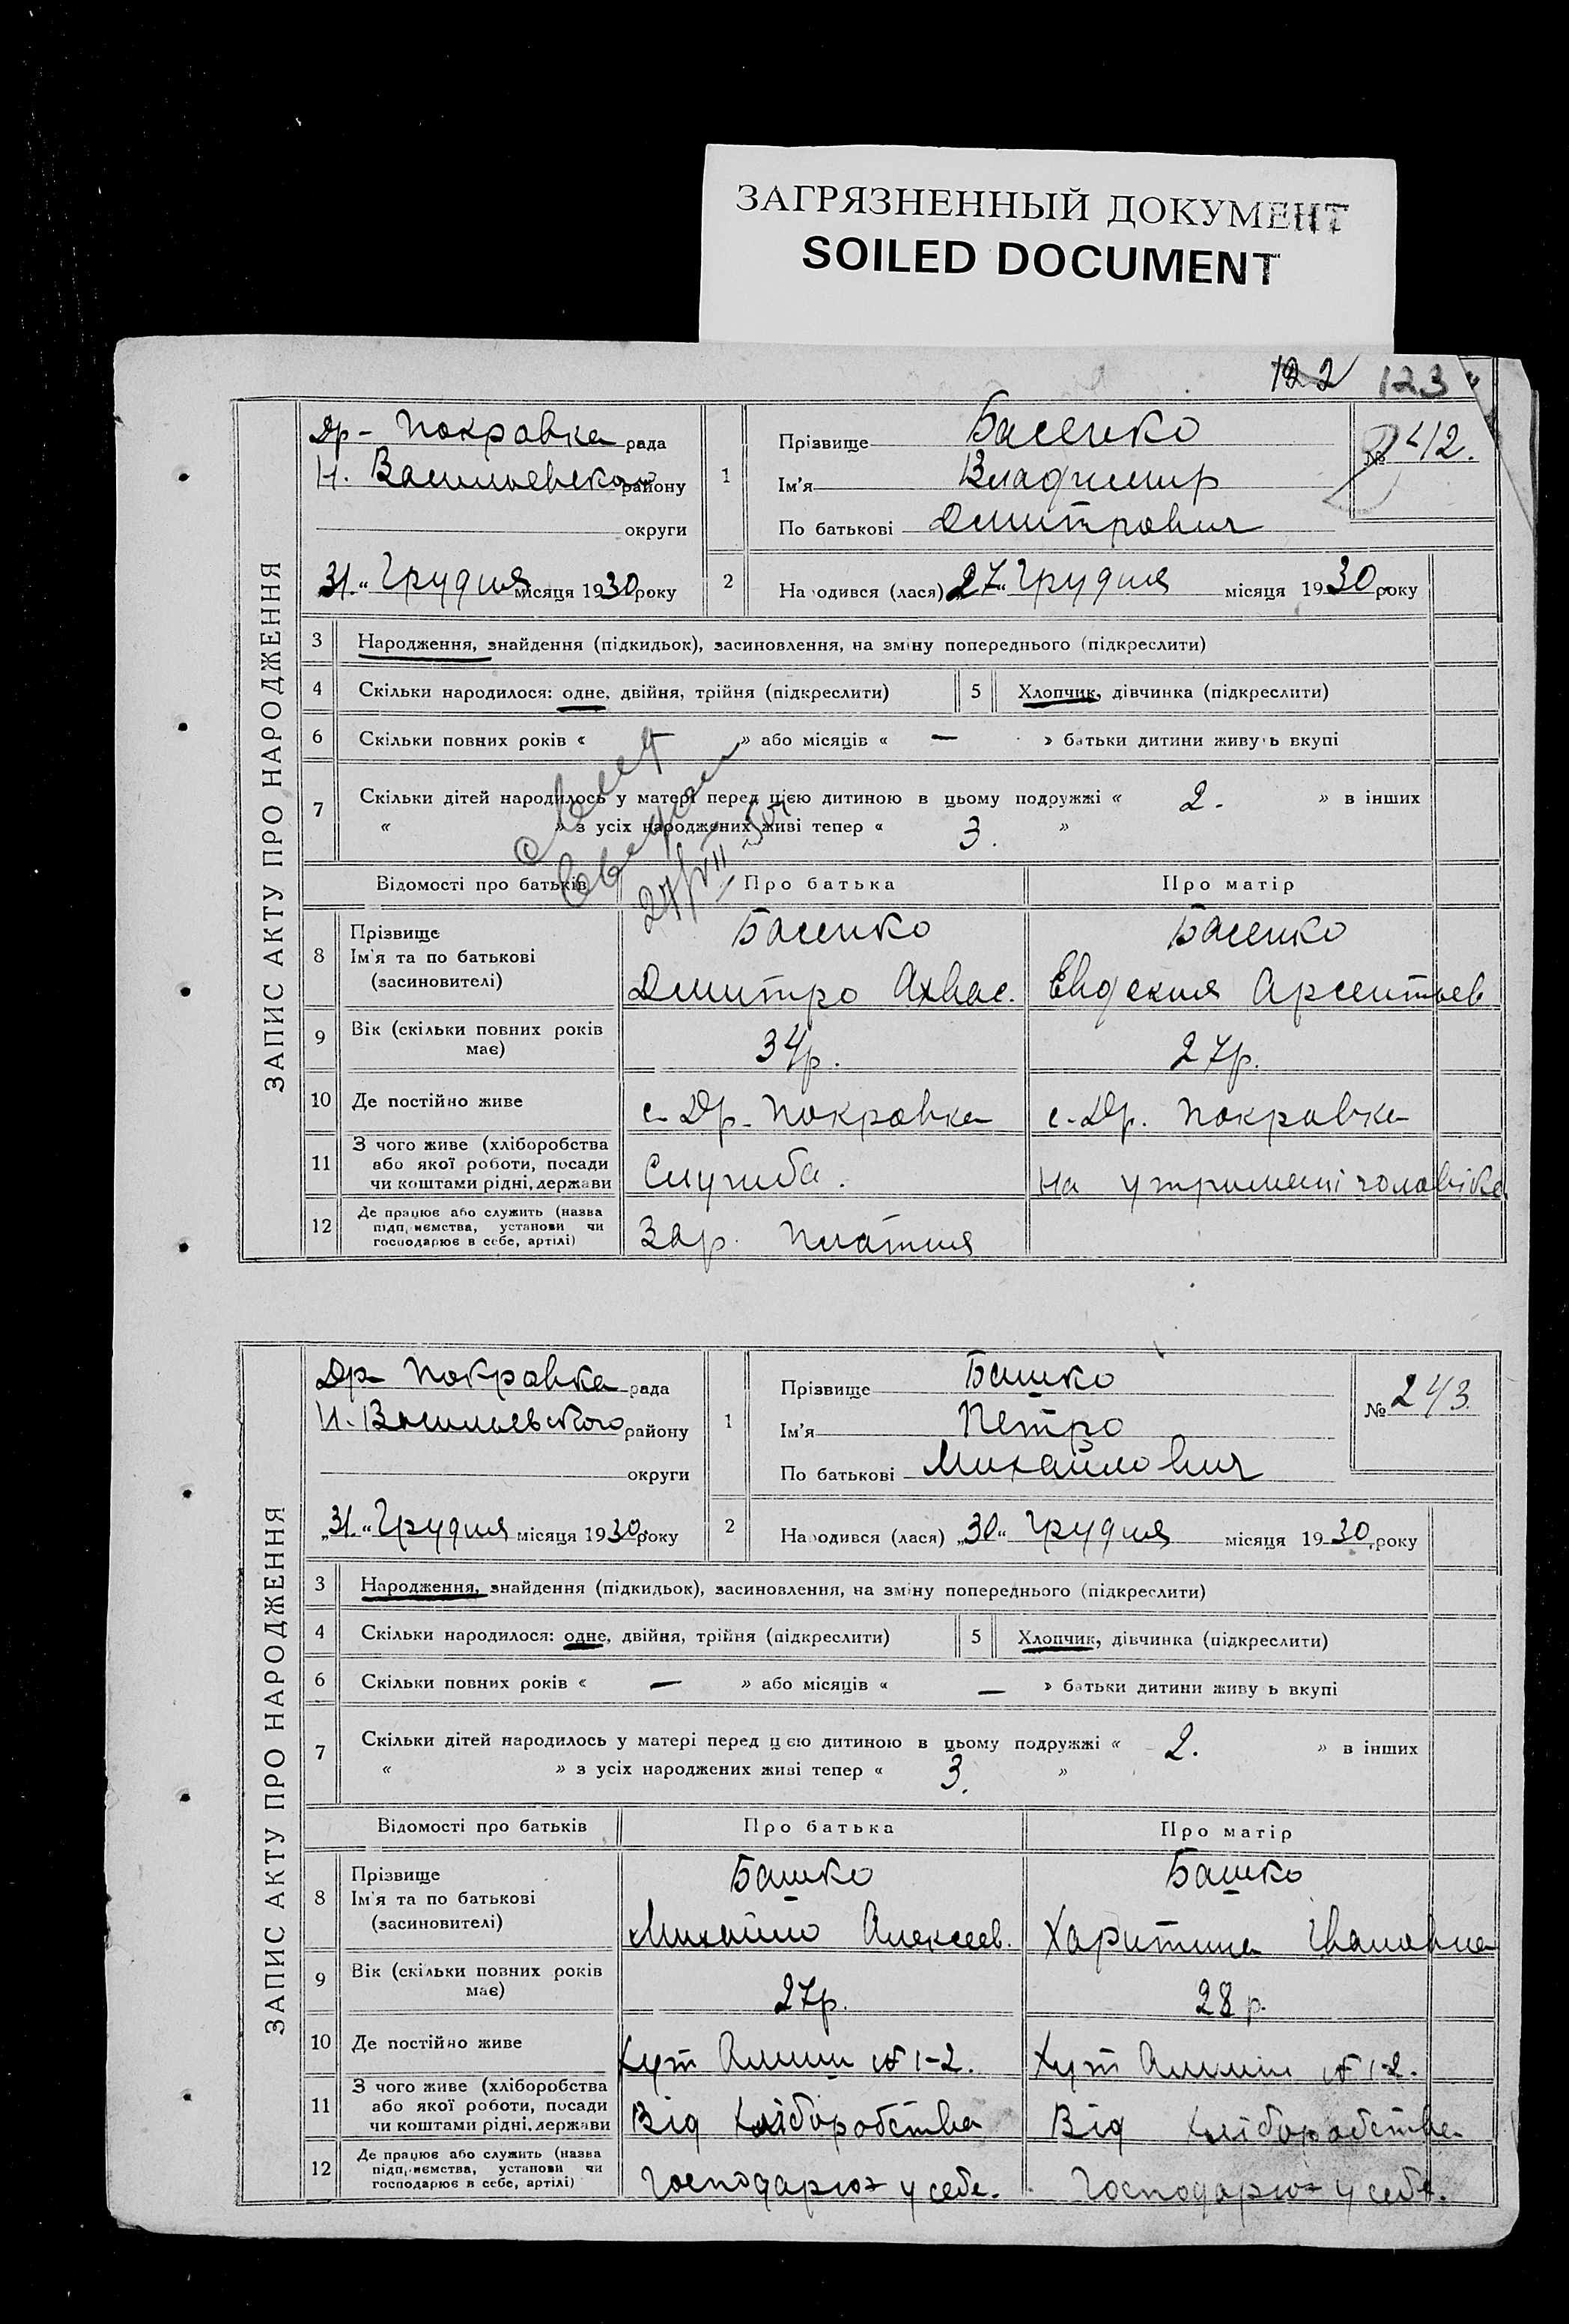 ЗАГРЯЗНЕННЫЙ ДОКУМЕНТ
SOILED DOCUMENT
122 123
ЗАПИС АКТУ ПРО НАРОДЖЕННЯ
Др- Покравка рада
Н. Васильевского району
округи
31 Грудня місяця 1930 року
1
Прізвище Басенко
Ім'я Владимир
По батькові Дмитрович
№ 242.
2 Народився (лася) „27“ Грудня місяця 1930 року
3 Народження, знайдення (підкидьок), засиновлення, на зміну попереднього (підкреслити)
4 Скільки народилося: одне, двійня, трійня (підкреслити) 5 Хлопчик, дівчинка (підкреслити)
6 Скільки повних років « » або місяців « — » батьки дитини живуть вкупі
7 Скільки дітей народилось у матері перед цією дитиною в цьому подружжі « 2. » в інших
« » з усіх народжених живі тепер « 3. »
Відомості про батьків Про батька Про матір
8 Прізвище
Ім'я та по батькові
(засиновителі)
Басенко
Дмитро Ахвас.
Басенко
Евдокия Арсентьев
9 Вік (скільки повних років має) 34р. 27р.
10 Де постійно живе с-Др-Покравка с-Др. Покравка
11 З чого живе (хліборобства
або якої роботи, посади
чи коштами рідні, держави
Служба. На утримані чоловіка
12 Де працює або служить (назва
підприємства, установи чи
господарює в себе, артілі)
Зар. Платня
ЗАПИС АКТУ ПРО НАРОДЖЕННЯ
Др- Покравка рада
Н. Васильевського району
округи
„31.“ Грудня місяця 1930 року
1
Прізвище Башко
Ім'я Петро
По батькові Михайлович
№ 243.
2 Народився (лася) „30“ Грудня місяця 1930 року
3 Народження, знайдення (підкидьок), засиновлення, на зміну попереднього (підкреслити)
4 Скільки народилося: одне, двійня, трійня (підкреслити) 5 Хлопчик, дівчинка (підкреслити)
6 Скільки повних років « — » або місяців « — » батьки дитини живу ь вкупі
7 Скільки дітей народилось у матері перед цією дитиною в цьому подружжі « 2. » в інших
« » з усіх народжених живі тепер « 3. »
Відомості про батьків Про батька Про матір
8 Прізвище
Ім'я та по батькові
(засиновителі)
Башко
Михайло Алексеев.
Башко
Харитина Івановна
9 Вік (скільки повних років має) 27р. 28 р.
10 Де постійно живе Хут № 1-2. Хут № 1-2.
11 З чого живе (хліборобства
або якої роботи, посади
чи коштами рідні, держави
Від хліборобства Від хліборобства
12 Де працює або служить (назва
підприємства, установи чи
господарює в себе, артілі)
Господарює у себе. Господарює у себе.